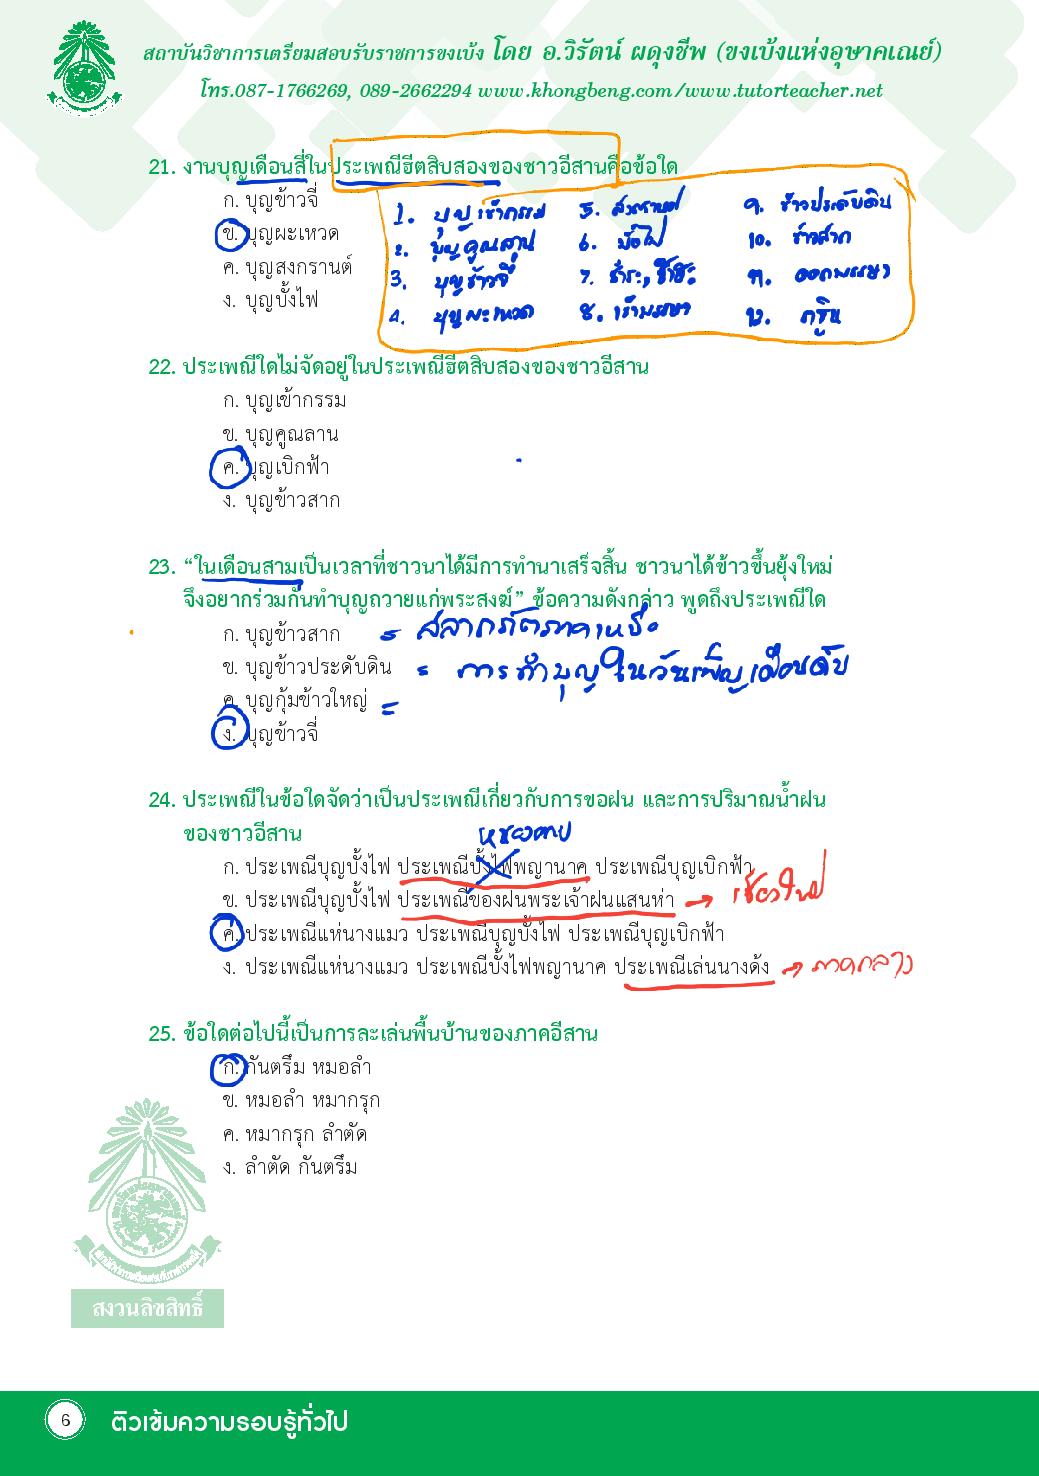 สถาบันวิชาการเตรียมสอบรับราชการขงเบ้ง โดย อ.วิรัตน์ ผดุงชีพ (ขงเบ้งแห่งอุษาคเณย์)
โทร.087-1766269, 089-2662294 www.khongbeng.com/www.tutorteacher.net
21. งานบุญเดือนสี่ในประเพณีฮีตสิบสองของชาวอีสานคือข้อใด
ก. บุญข้าวจี่
ข. บุญผะเหวด
ค. บุญสงกรานต์
ง. บุญบั้งไฟ
1. บุญเข้ากรรม
2. บุญคูณลาน
3. บุญข้าวจี่
4. บุญผะเหวด
5. สงกรานต์
6. บั้งไฟ
7. ซำฮะ
8. เข้าพรรษา
๙. ข้าวประดับดิน
10. ข้าวสาก
๑๑. ออกพรรษา
๑๒. กฐิน
22. ประเพณีใดไม่จัดอยู่ในประเพณีฮีตสิบสองของชาวอีสาน
ก. บุญเข้ากรรม
ข. บุญคูณลาน
ค. บุญเบิกฟ้า
ง. บุญข้าวสาก
23. “ในเดือนสามเป็นเวลาที่ชาวนาได้มีการทำนาเสร็จสิ้น ชาวนาได้ข้าวขึ้นยุ้งใหม่
จึงอยากร่วมกันทำบุญถวายแก่พระสงฆ์” ข้อความดังกล่าว พูดถึงประเพณีใด
ก. บุญข้าวสาก = สลากภัตภาคเหนือ
ข. บุญข้าวประดับดิน = การทำบุญในวันเพ็ญเดือนดับ
ค. บุญกุ้มข้าวใหญ่ =
ง. บุญข้าวจี่
24. ประเพณีในข้อใดจัดว่าเป็นประเพณีเกี่ยวกับการขอฝน และการปริมาณน้ำฝน
ของชาวอีสาน
หนองคาย
ก. ประเพณีบุญบั้งไฟ ประเพณีบั้งไฟพญานาค ประเพณีบุญเบิกฟ้า
ข. ประเพณีบุญบั้งไฟ ประเพณีของฝนพระเจ้าฝนแสนห่า → เชียงใหม่
ค. ประเพณีแห่นางแมว ประเพณีบุญบั้งไฟ ประเพณีบุญเบิกฟ้า
ง. ประเพณีแห่นางแมว ประเพณีบั้งไฟพญานาค ประเพณีเล่นนางด้ง → ภาคกลาง
25. ข้อใดต่อไปนี้เป็นการละเล่นพื้นบ้านของภาคอีสาน
ก. กันตรึม หมอลำ
ข. หมอลำ หมากรุก
ค. หมากรุก ลำตัด
ง. ลำตัด กันตรึม
สงวนลิขสิทธิ์
6 ติวเข้มความรอบรู้ทั่วไป